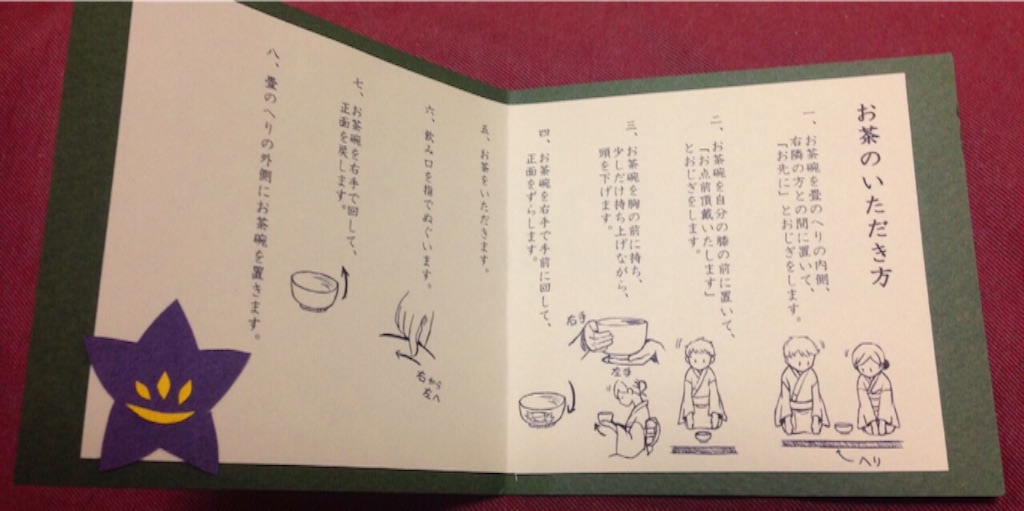 お茶のいただき方
一、お茶碗を畳のへりの内側、
右隣の方との間に置いて、
「お先に」とおじぎをします。
へり
二、お茶碗を自分の膝の前に置いて、
「お点前頂戴いたします」
とおじぎをします。
三、お茶碗を胸の前に持ち、
少しだけ持ち上げながら、
頭を下げます。
右手
左手
四、お茶碗を右手で手前に回して、
正面をずらします。
五、お茶をいただきます。
六、飲み口を指でぬぐいます。
右から
左へ
七、お茶碗を右手で回して、
正面を戻します。
八、畳のへりの外側にお茶碗を置きます。